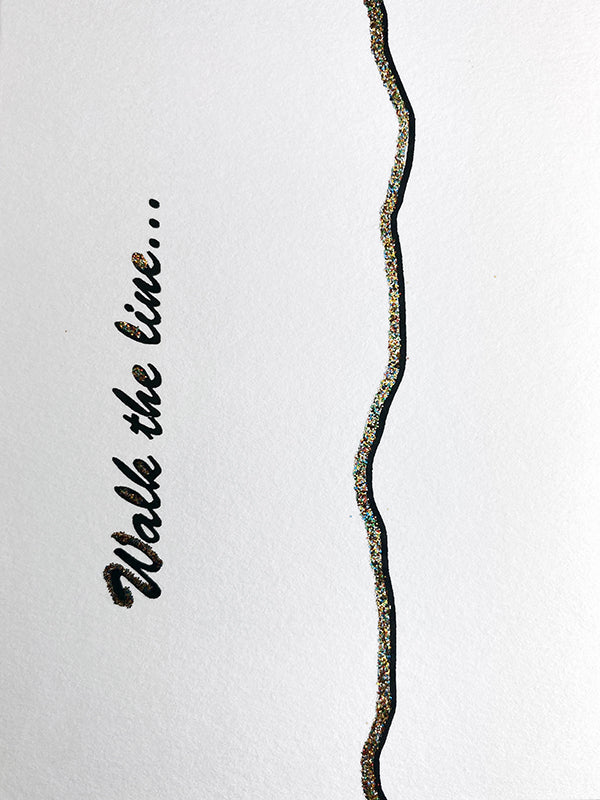 Walk the line...